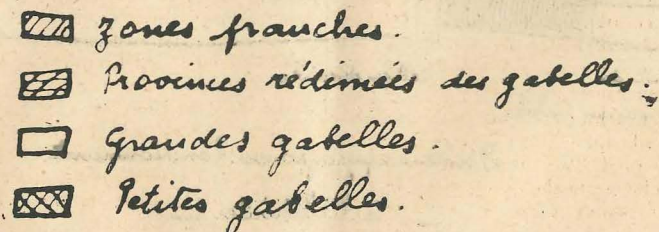 Zones franches.
Provinces rédimées des gabelles.
Grandes gabelles.
Petites gabelles.